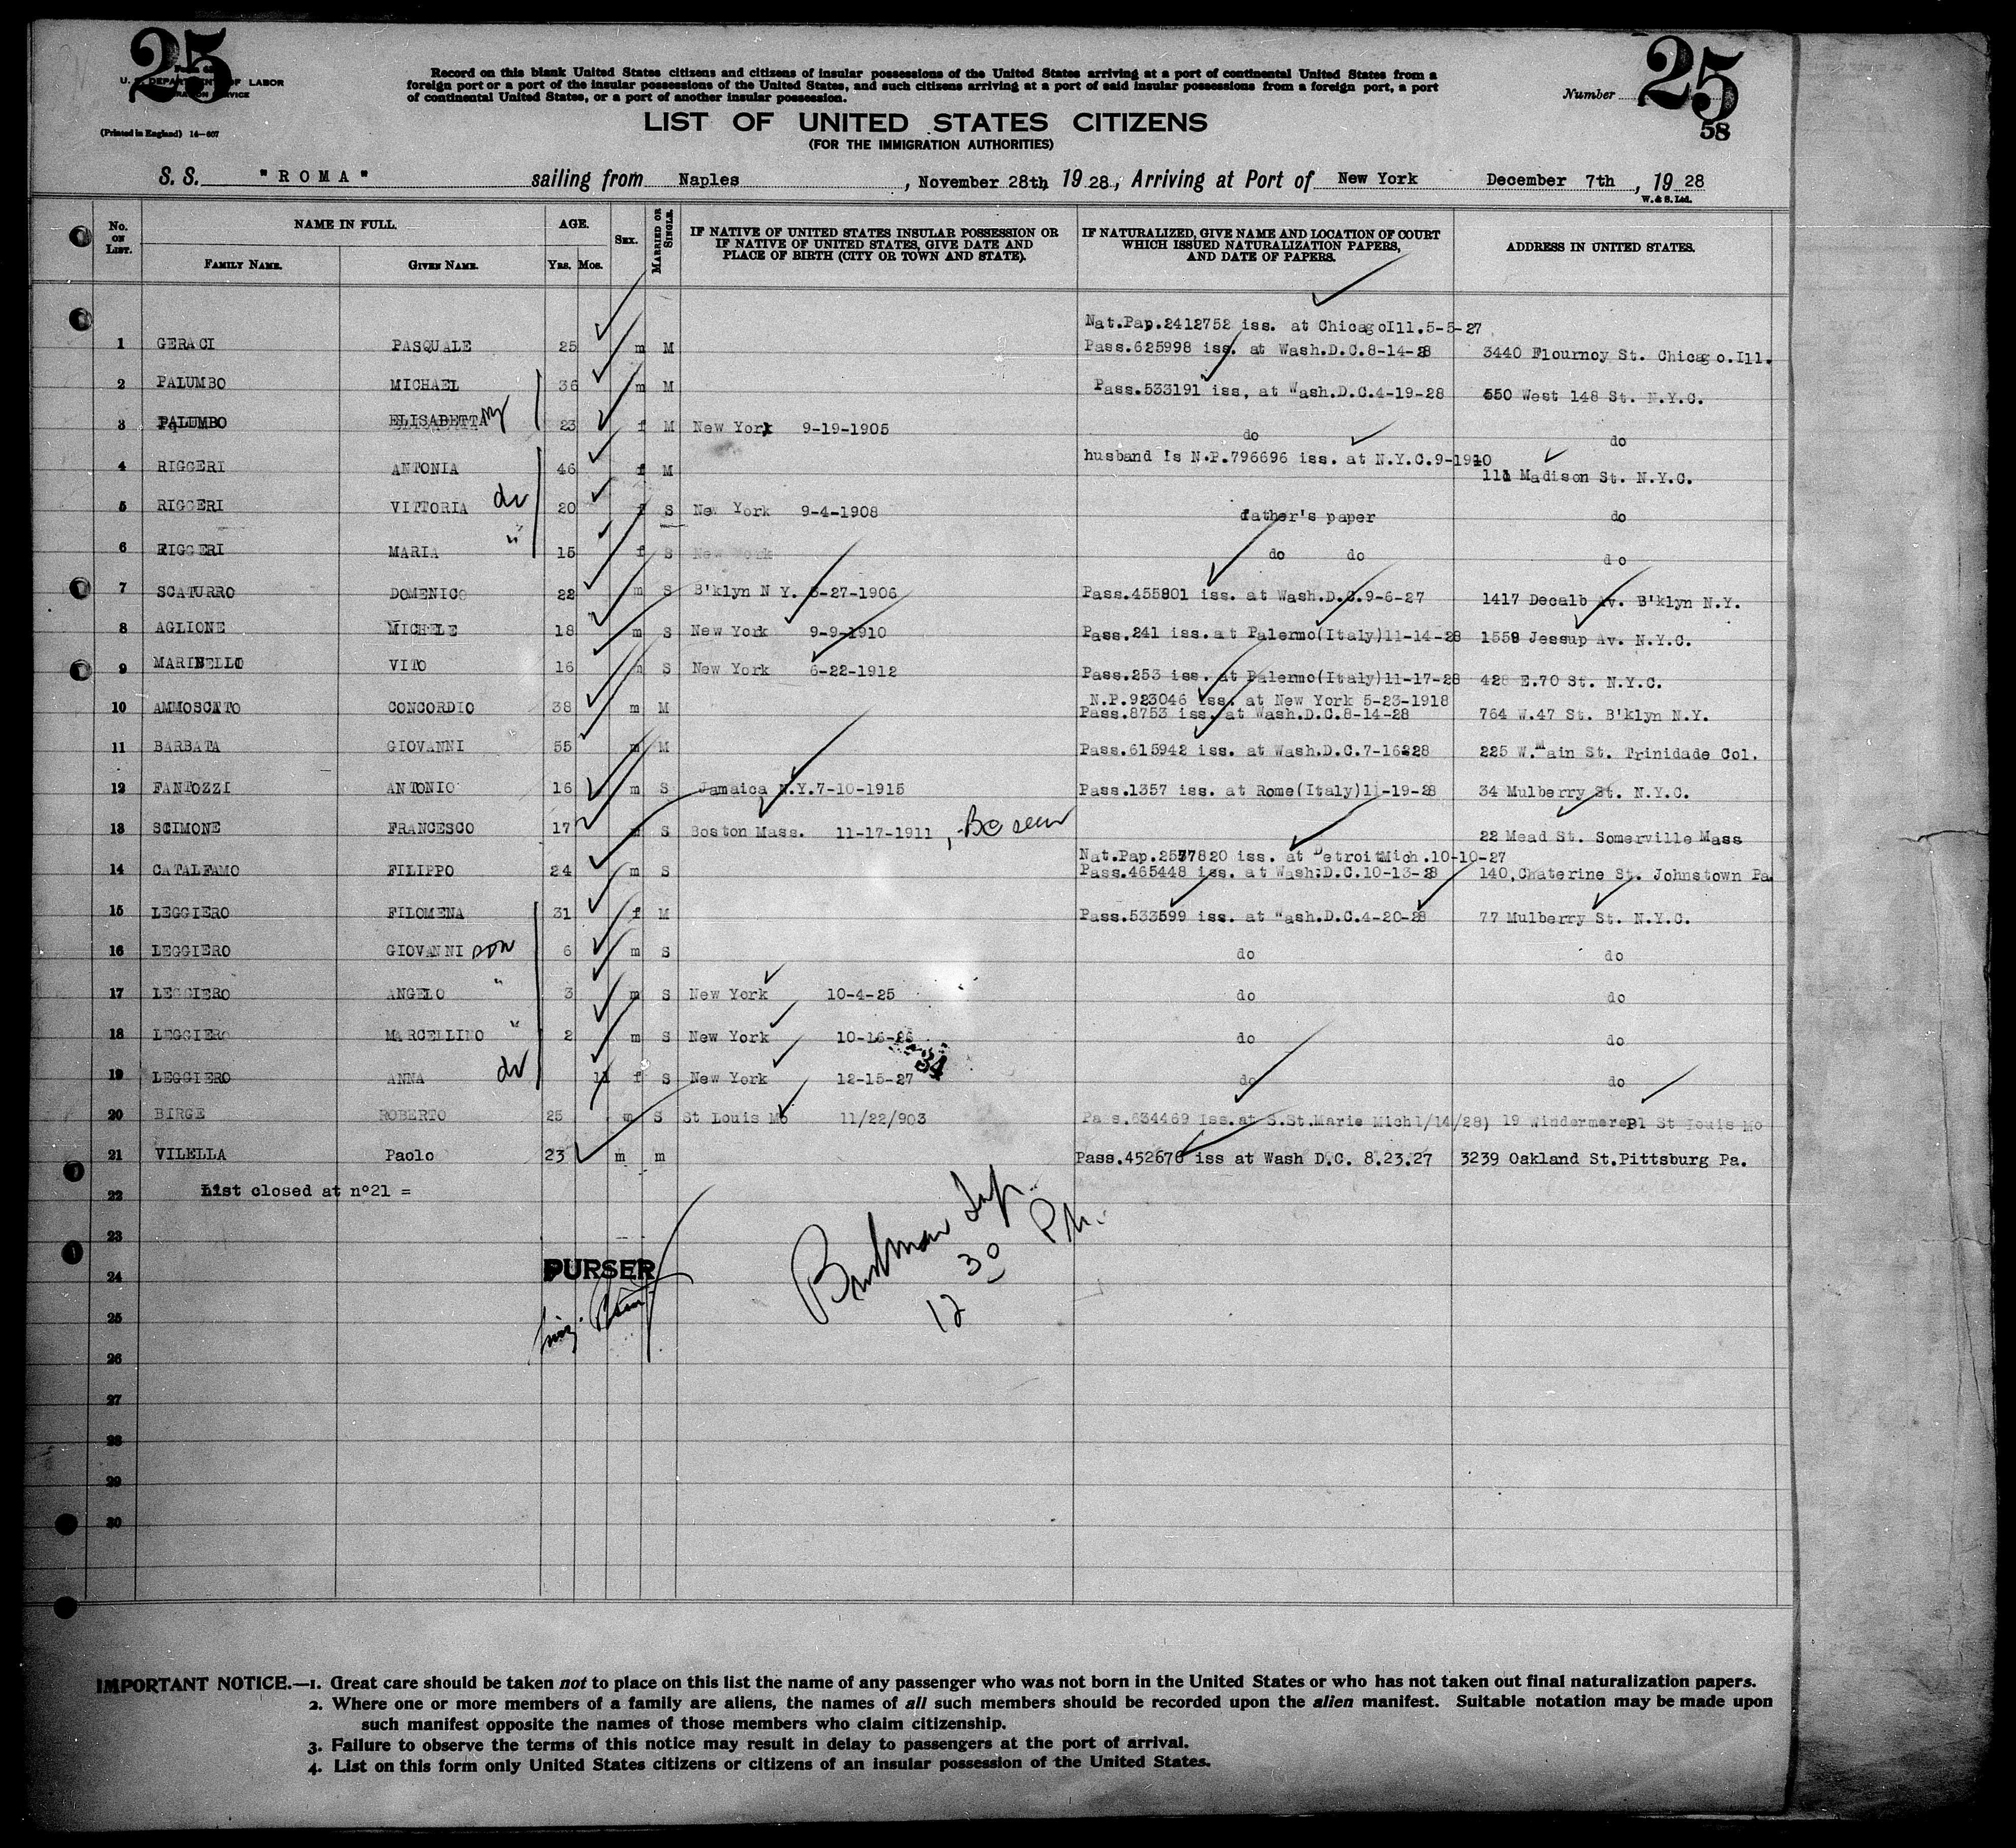 25
25
58
U. S. DEPARTMENT OF LABOR
(Printed in England) 14—607
Record on this blank United States citizens and citizens of insular possessions of the United States arriving at a port of continental United States from a
foreign port or a port of the insular possessions of the United States, and such citizens arriving at a port of said insular possessions from a foreign port, a port
of continental United States, or a port of another insular possession.
Number
LIST OF UNITED STATES CITIZENS
(FOR THE IMMIGRATION AUTHORITIES)
S. S. "ROMA" sailing from Naples, November 28th 1928, Arriving at Port of New York December 7th, 1928
W. & S. Ltd.
No. ON LIST. NAME IN FULL. AGE. SEX. MARRIED OR SINGLE. IF NATIVE OF UNITED STATES INSULAR POSSESSION OR IF NATIVE OF UNITED STATES, GIVE DATE AND PLACE OF BIRTH (CITY OR TOWN AND STATE). IF NATURALIZED, GIVE NAME AND LOCATION OF COURT WHICH ISSUED NATURALIZATION PAPERS, AND DATE OF PAPERS. ADDRESS IN UNITED STATES.
FAMILY NAME. GIVEN NAME. YRS. MOS.
Nat.Pap.2412752 iss. at ChicagoIll.5-5-27
1 GERACI PASQUALE 25 m M Pass.625998 iss. at Wash.D.C.8-14-28 3440 Flournoy St. Chicago.Ill.
2 PALUMBO MICHAEL 36 m M Pass.533191 iss, at Wash.D.C.4-19-28 550 West 148 St. N.Y.C.
3 PALUMBO ELISABETTA 23 f M New York 9-19-1905 do do
husband Is N.P.796696 iss. at N.Y.C.9-1910
4 RIGGERI ANTONIA 46 f M 111 Madison St. N.Y.C.
5 RIGGERI VITTORIA 20 f S New York 9-4-1908 father's paper do
6 RIGGERI MARIA " 15 f S New York do do do
7 SCATURRO DOMENICO 22 m S B'klyn N Y. 6-27-1906 Pass.455801 iss. at Wash.D.C.9-6-27 1417 Decalb Av. B'klyn N.Y.
8 AGLIONE MICHELE 18 m S New York 9-9-1910 Pass.241 iss.at Palermo(Italy)11-14-28 1559 Jessup Av. N.Y.C.
9 MARINELLO VITO 16 m S New York 6-22-1912 Pass.253 iss. at Palermo(Italy)11-17-28 428 E.70 St. N.Y.C.
N.P.923046 iss. at New York 5-23-1918
10 AMMOSCATO CONCORDIO 38 m M Pass.8753 iss. at Wash.D.C.8-14-28 764 W.47 St. B'klyn N.Y.
11 BARBATA GIOVANNI 55 m M Pass.615942 iss. at Wash.D.C.7-16-28 225 W.Main St. Trinidade Col.
12 FANTOZZI ANTONIO 16 m S Jamaica N.Y.7-10-1915 Pass.1357 iss. at Rome(Italy)11-19-28 34 Mulberry St. N.Y.C.
13 SCIMONE FRANCESCO 17 m S Boston Mass. 11-17-1911, BC seen 22 Mead St. Somerville Mass
Nat.Pap.2577820 iss. at DetroitMich.10-10-27
14 CATALFAMO FILIPPO 24 m S Pass.465448 iss. at Wash:D.C.10-13-28 140,Chaterine St. Johnstown Pa.
15 LEGGIERO FILOMENA 31 f M Pass.533599 iss. at Wash.D.C.4-20-28 77 Mulberry St. N.Y.C.
16 LEGGIERO GIOVANNI son 6 m S do do
17 LEGGIERO ANGELO " 3 m S New York 10-4-25 do do
18 LEGGIERO MARCELLINO " 2 m S New York 10-16-26 do do
19 LEGGIERO ANNA 11 f S New York 12-15-27 do do
20 BIRGE ROBERTO 25 m S St Louis Mo 11/22/903 Pass.634469 Iss.at S.St.Marie Mich1/14/28) 19 WindermerePl St Louis Mo
21 VILELLA Paolo 23 m m Pass.452676 iss at Wash D.C. 8.23.27 3239 Oakland St.Pittsburg Pa.
22 List closed at n°21 =
23
24 PURSER
12 30 P.M.
25
26
27
28
29
30
IMPORTANT NOTICE.—1. Great care should be taken not to place on this list the name of any passenger who was not born in the United States or who has not taken out final naturalization papers.
2. Where one or more members of a family are aliens, the names of all such members should be recorded upon the alien manifest. Suitable notation may be made upon
such manifest opposite the names of those members who claim citizenship.
3. Failure to observe the terms of this notice may result in delay to passengers at the port of arrival.
4. List on this form only United States citizens or citizens of an insular possession of the United States.